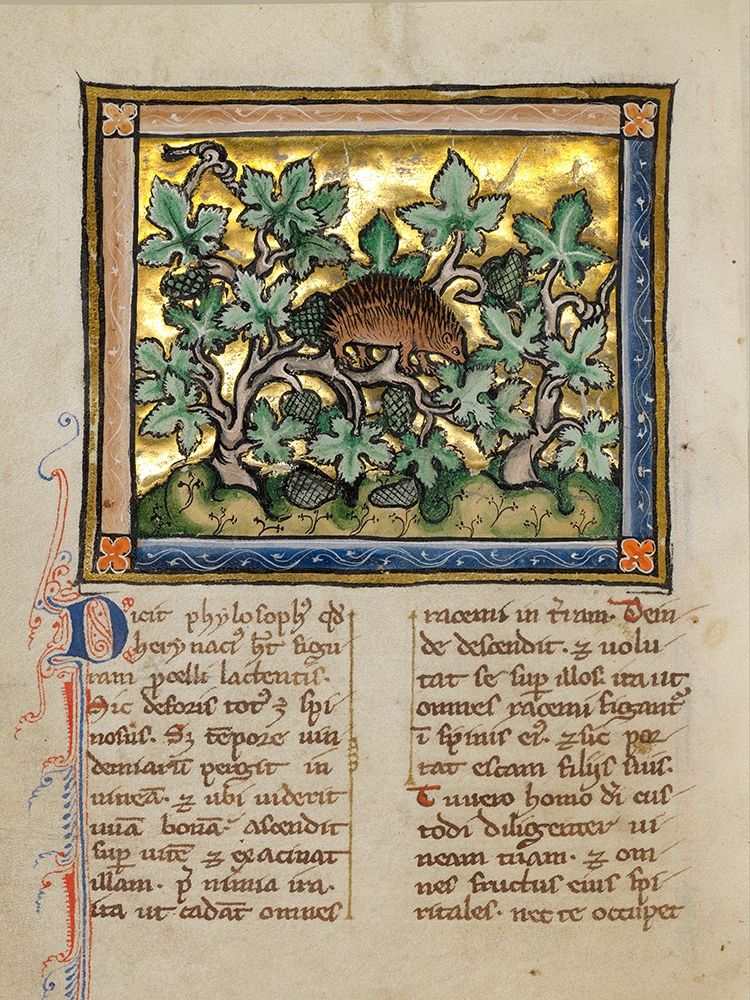 Dicit phylosoph' qd
herynaci' ht figu
ram pcelli lactentis.
Hic deforis tot' ē spi
nosus. Sȝ tēpore uin
demiarū pergit in
uineā. ⁊ ubi uiderit
uuā bonā. ascendit
sup uitē ⁊ exacinat
illam. p̄ nimia ira.
ita ut cadāt omnes
racemi in t̄ram. Dein
de descendit. ⁊ uolu
tat se sup illos. ita ut
omnes racemi figant'
ī spinis ei'. ⁊ sic por
tat escam filijs suis.
Tu uero homo dī cus
todi diligenter ui
neam tuam. ⁊ om
nes fructus eius spi
ritales. nec te occupet